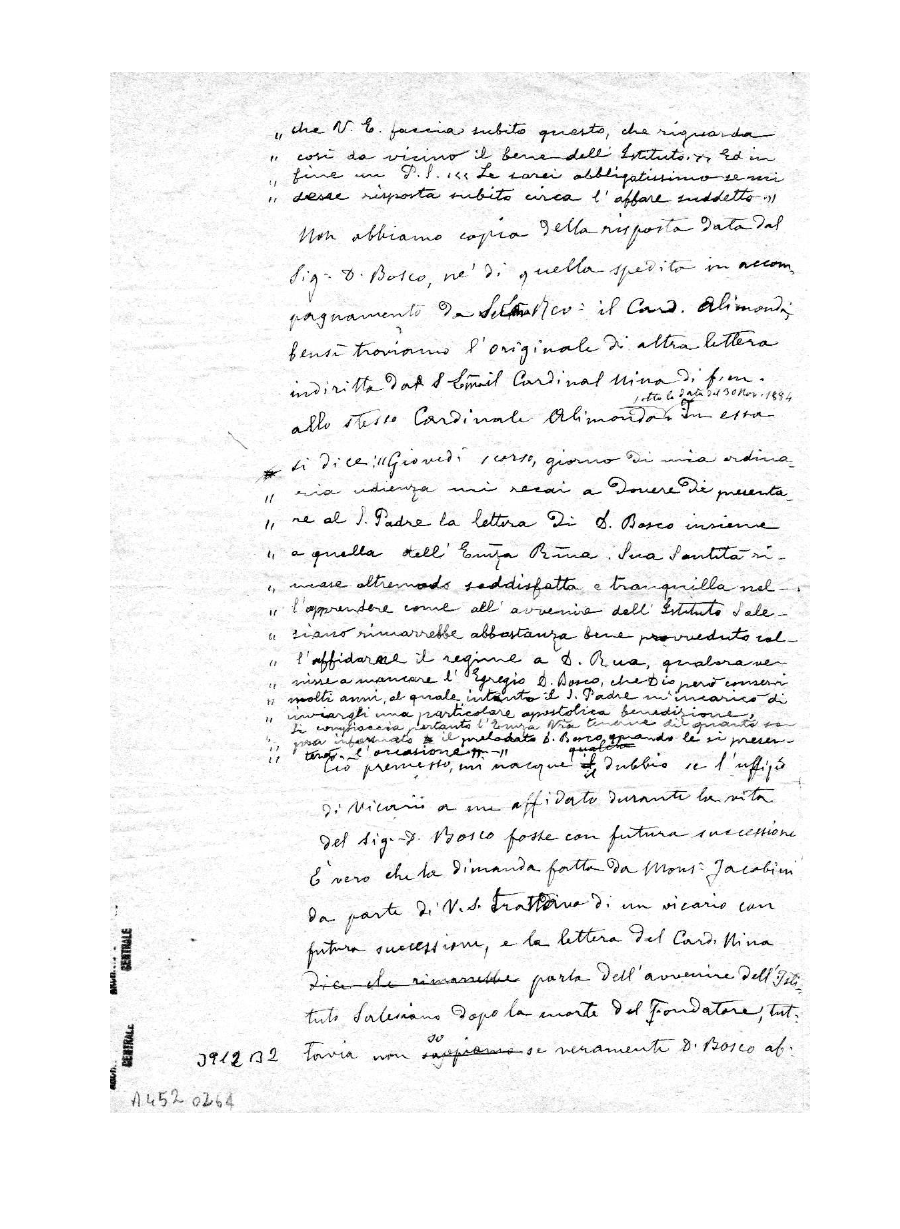 „ che V. E. faccia subito questo, che riguarda
„ così da vicino il bene dell' Istituto.›› Ed in
„ fine un P.S. ‹‹ Le sarei obbligatissimo se mi
„ desse risposta subito circa l' affare suddetto.››
Non abbiamo copia della risposta data dal
Sig. D. Bosco, nè di quella spedita in accom-
pagnamento da il Card. Alimonda,
bensì troviamo l'originale di altra lettera
indiritta dal S. Cardinal Nina di f. m.
sotto la data del 30 Nov. 1884
allo stesso Cardinale Alimonda. In essa
si dice: "Giovedì scorso, giorno di mia ordina-
„ ria udienza mi recai a dovere di presenta-
„ re al S. Padre la lettera di D. Bosco insieme
„ a quella dell' Emza Rma. Sua Santità ri-
„ mase oltremodo soddisfatta e tranquilla nel-
„ l'apprendere come all' avvenire dell' Istituto Sale-
„ siano rimarrebbe abbastanza bene provveduto col-
„ l'affidarne il regime a D. Rua, qualora ve-
„ nisse a mancare l' Egregio D. Bosco, che Dio però conservi
„ molti anni, al quale intanto il S. Padre m'incaricò di
„ inviargli una particolare apostolica benedizione.
„ Si compiaccia pertanto l'Emza Vra tenerne di quanto so-
„ pra informato il prelodato D. Bosco, quando le si presen-
„ terà l'occasione „ „
qualche
Ciò premesso, mi nacque il dubbio se l'uffizio
di Vicario a me affidato durante la vita
del Sig. D. Bosco fosse con futura successione
È vero che la dimanda fatta da Mons. Jacobini
da parte di V. S. trattava di un vicario con
futura successione, e la lettera del Card. Nina
dice che rimarrebbe parla dell'avvenire dell'Isti-
tuto Salesiano dopo la morte del Fondatore, tut-
so
3912 B2 tavia non sappiamo se veramente D. Bosco ab-
A452 0264
CENTRALE
CENTRALE